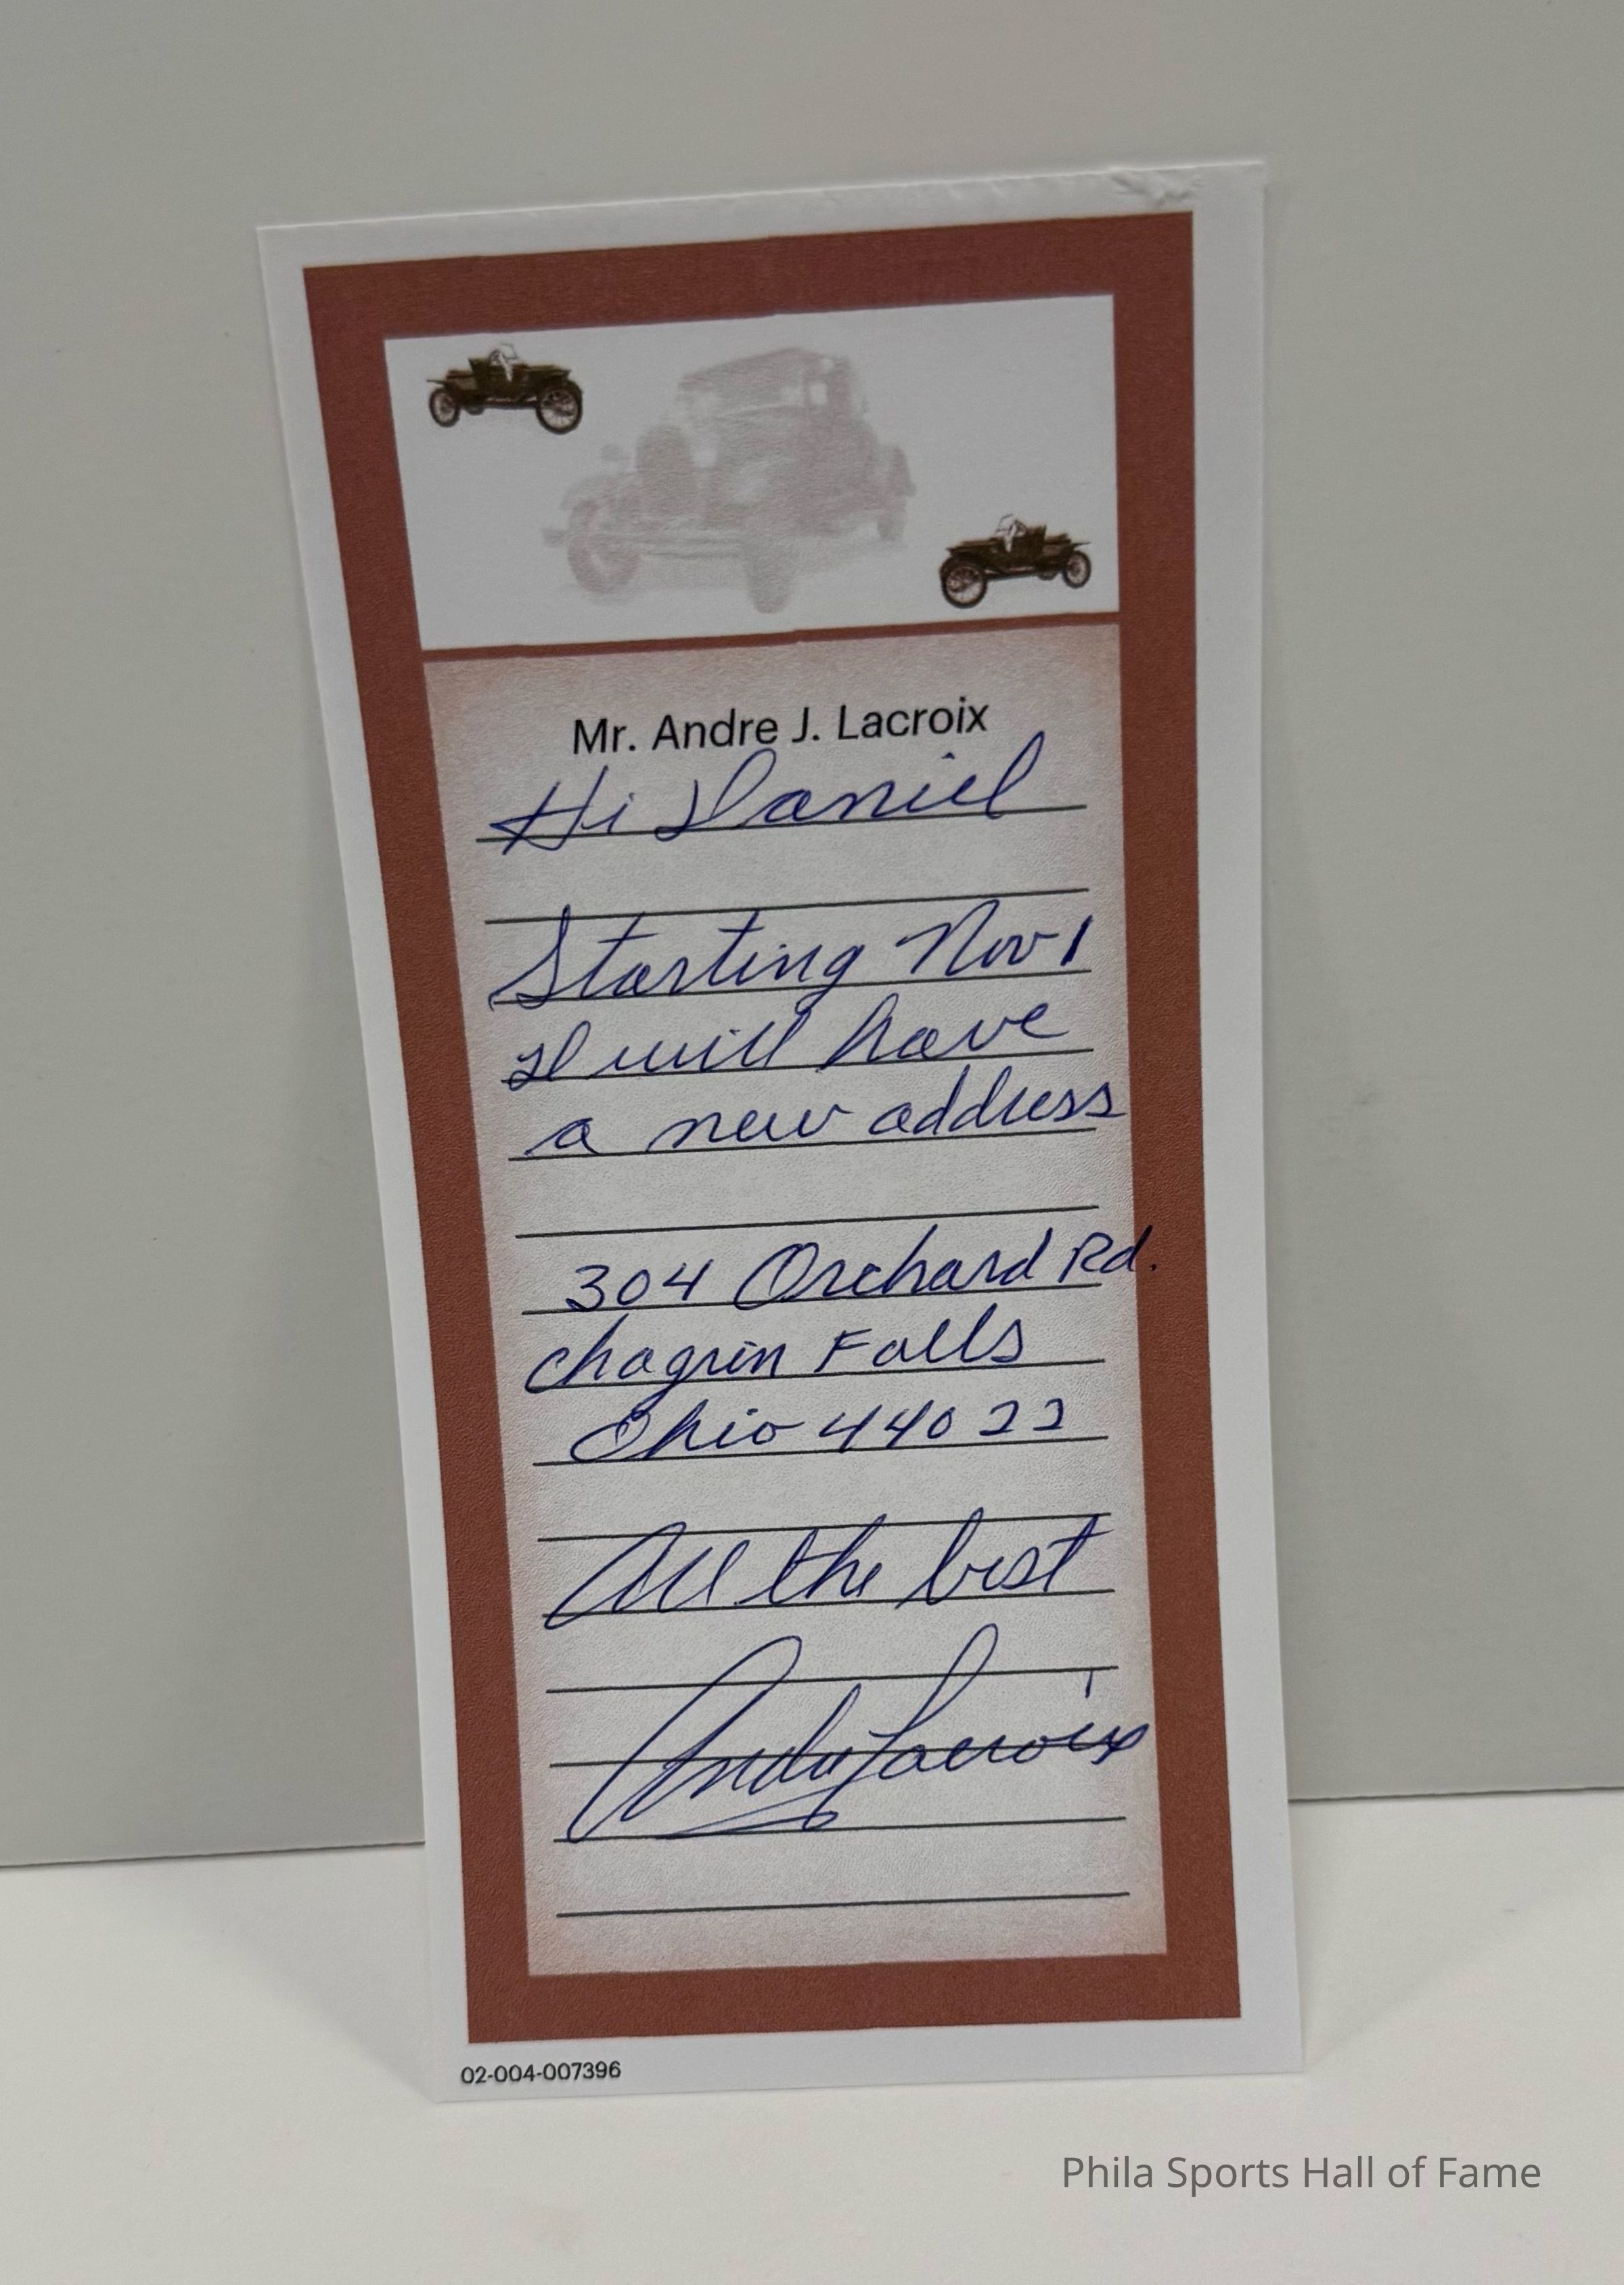 Mr. Andre J. Lacroix
Hi Daniel
Starting Nov 1
I will have
a new address
304 Orchard Rd.
Chagrin Falls
Ohio 44022
All the best
Andre Lacroix
02-004-007396
Phila Sports Hall of Fame